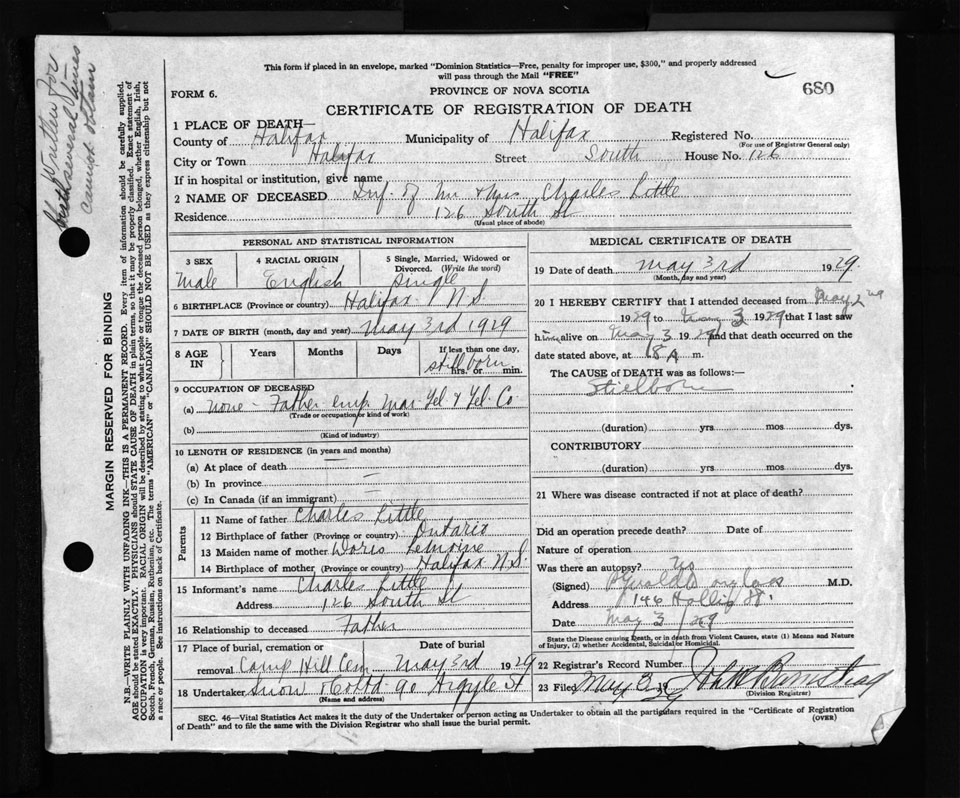 This form if placed in an envelope, marked "Dominion Statistics—Free, penalty for improper use, $300," and properly addressed
will pass through the Mail "FREE"
680
FORM 6.
PROVINCE OF NOVA SCOTIA
CERTIFICATE OF REGISTRATION OF DEATH
1 PLACE OF DEATH—
County of Halifax Municipality of Halifax Registered No.
(For use of Registrar General only)
City or Town Halifax Street South House No. 126
If in hospital or institution, give name
2 NAME OF DECEASED Inf. of Mr & Mrs Charles Little
Residence 126 South St
(Usual place of abode)
PERSONAL AND STATISTICAL INFORMATION
3 SEX
Male
4 RACIAL ORIGIN
English
5 Single, Married, Widowed or
Divorced. (Write the word)
Single
6 BIRTHPLACE (Province or country) Halifax N.S.
7 DATE OF BIRTH (month, day and year) May 3rd 1929
8 AGE IN
Years Months Days If less than one day,
stillborn
hrs. or min.
9 OCCUPATION OF DECEASED
(a) None - Father emp. Mar Tel & Tel Co.
(Trade or occupation or kind of work)
(b)
(Kind of industry)
10 LENGTH OF RESIDENCE (in years and months)
(a) At place of death —
(b) In province —
(c) In Canada (if an immigrant) —
Parents
11 Name of father Charles Little
12 Birthplace of father (Province or country) Ontario
13 Maiden name of mother Doris Lemoine
14 Birthplace of mother (Province or country) Halifax N.S.
15 Informant's name Charles Little
Address 126 South St
16 Relationship to deceased Father
17 Place of burial, cremation or Date of burial
removal Camp Hill Cem May 3rd 1929
18 Undertaker Snow & Co Ltd 90 Argyle St
(Name and address)
MEDICAL CERTIFICATE OF DEATH
19 Date of death May 3rd 1929.
(Month, day and year)
20 I HEREBY CERTIFY that I attended deceased from May 2nd
1929 to May 3 1929 that I last saw
him alive on May 3 1929 and that death occurred on the
date stated above, at 8 A m.
The CAUSE of DEATH was as follows:—
Stillborn
(duration) yrs mos dys.
CONTRIBUTORY
(duration) yrs. mos dys.
21 Where was disease contracted if not at place of death?
Did an operation precede death? Date of
Nature of operation
Was there an autopsy? No
(Signed) M.D.
Address 146 Hollis St.
Date May 3/29
State the Disease causing Death, or in death from Violent Causes, state (1) Means and Nature
of Injury, (2) whether Accidental, Suicidal or Homicidal.
22 Registrar's Record Number
23 Filed May 3 19
(Division Registrar)
SEC. 46—Vital Statistics Act makes it the duty of the Undertaker or person acting as Undertaker to obtain all the particulars required in the "Certificate of Registration
of Death" and to file the same with the Division Registrar who shall issue the burial permit.
(OVER)
written for
several times
cannot obtain
MARGIN RESERVED FOR BINDING
N.B.—WRITE PLAINLY WITH UNFADING INK—THIS IS A PERMANENT RECORD. Every item of information should be carefully supplied.
AGE should be stated EXACTLY. PHYSICIANS should STATE CAUSE OF DEATH in plain terms, so that it may be properly classified. Exact statement of
OCCUPATION is very important. RACIAL ORIGIN will be described by stating to what people or tongue the deceased person belonged, whether English, Irish,
Scotch, French, German, Russian, Ruthenian, etc. The terms "AMERICAN" or "CANADIAN" SHOULD NOT BE USED as they express citizenship but not
a race or people. See instructions on back of Certificate.